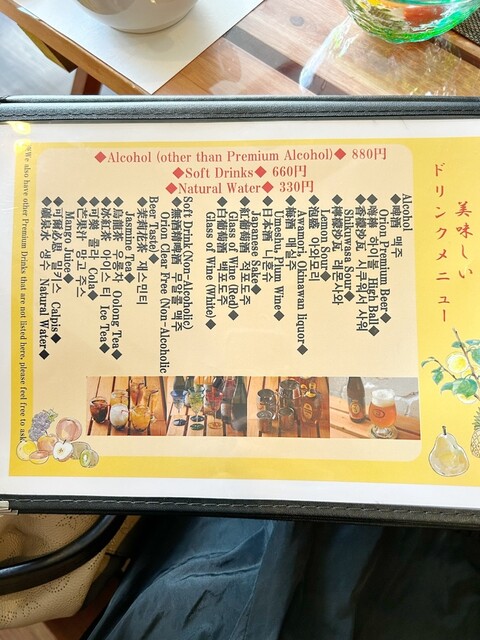 美味しい
ドリンクメニュー
◆Alcohol (other than Premium Alcohol)◆ 880円
◆Soft Drinks◆ 660円
◆Natural Water◆ 330円
Alcohol
◆啤酒 맥주
Orion Premium Beer◆
하이볼 High Ball◆
시쿠워서 사워
Shikuwasa Sour◆
레몬사와
Lemon Sour◆
◆泡盛 아와모리
Awamori, Okinawan liquor◆
◆梅酒 매실주
Umeshu, Plum Wine◆
◆日本酒 니혼슈
Japanese Sake◆
◆紅葡萄酒 적포도주
Glass of Wine (Red)◆
◆白葡萄酒 백포도주
Glass of Wine (White)◆
Soft Drink(Non-Alcoholic)
무알콜 맥주
Orion Clear Free (Non-Alcoholic
Beer Taste)◆
◆茉莉花茶 재스민티
Jasmine Tea◆
◆烏龍茶 우롱차 Oolong Tea◆
◆冰紅茶 아이스 티 Ice Tea◆
◆可樂 콜라 Cola◆
◆芒果汁 망고 주스
Mango Juice◆
◆可爾必思 칼피스 Calpis◆
◆礦泉水 생수 Natural Water◆
We also have other Premium Drinks that are not listed here, please feel free to ask.